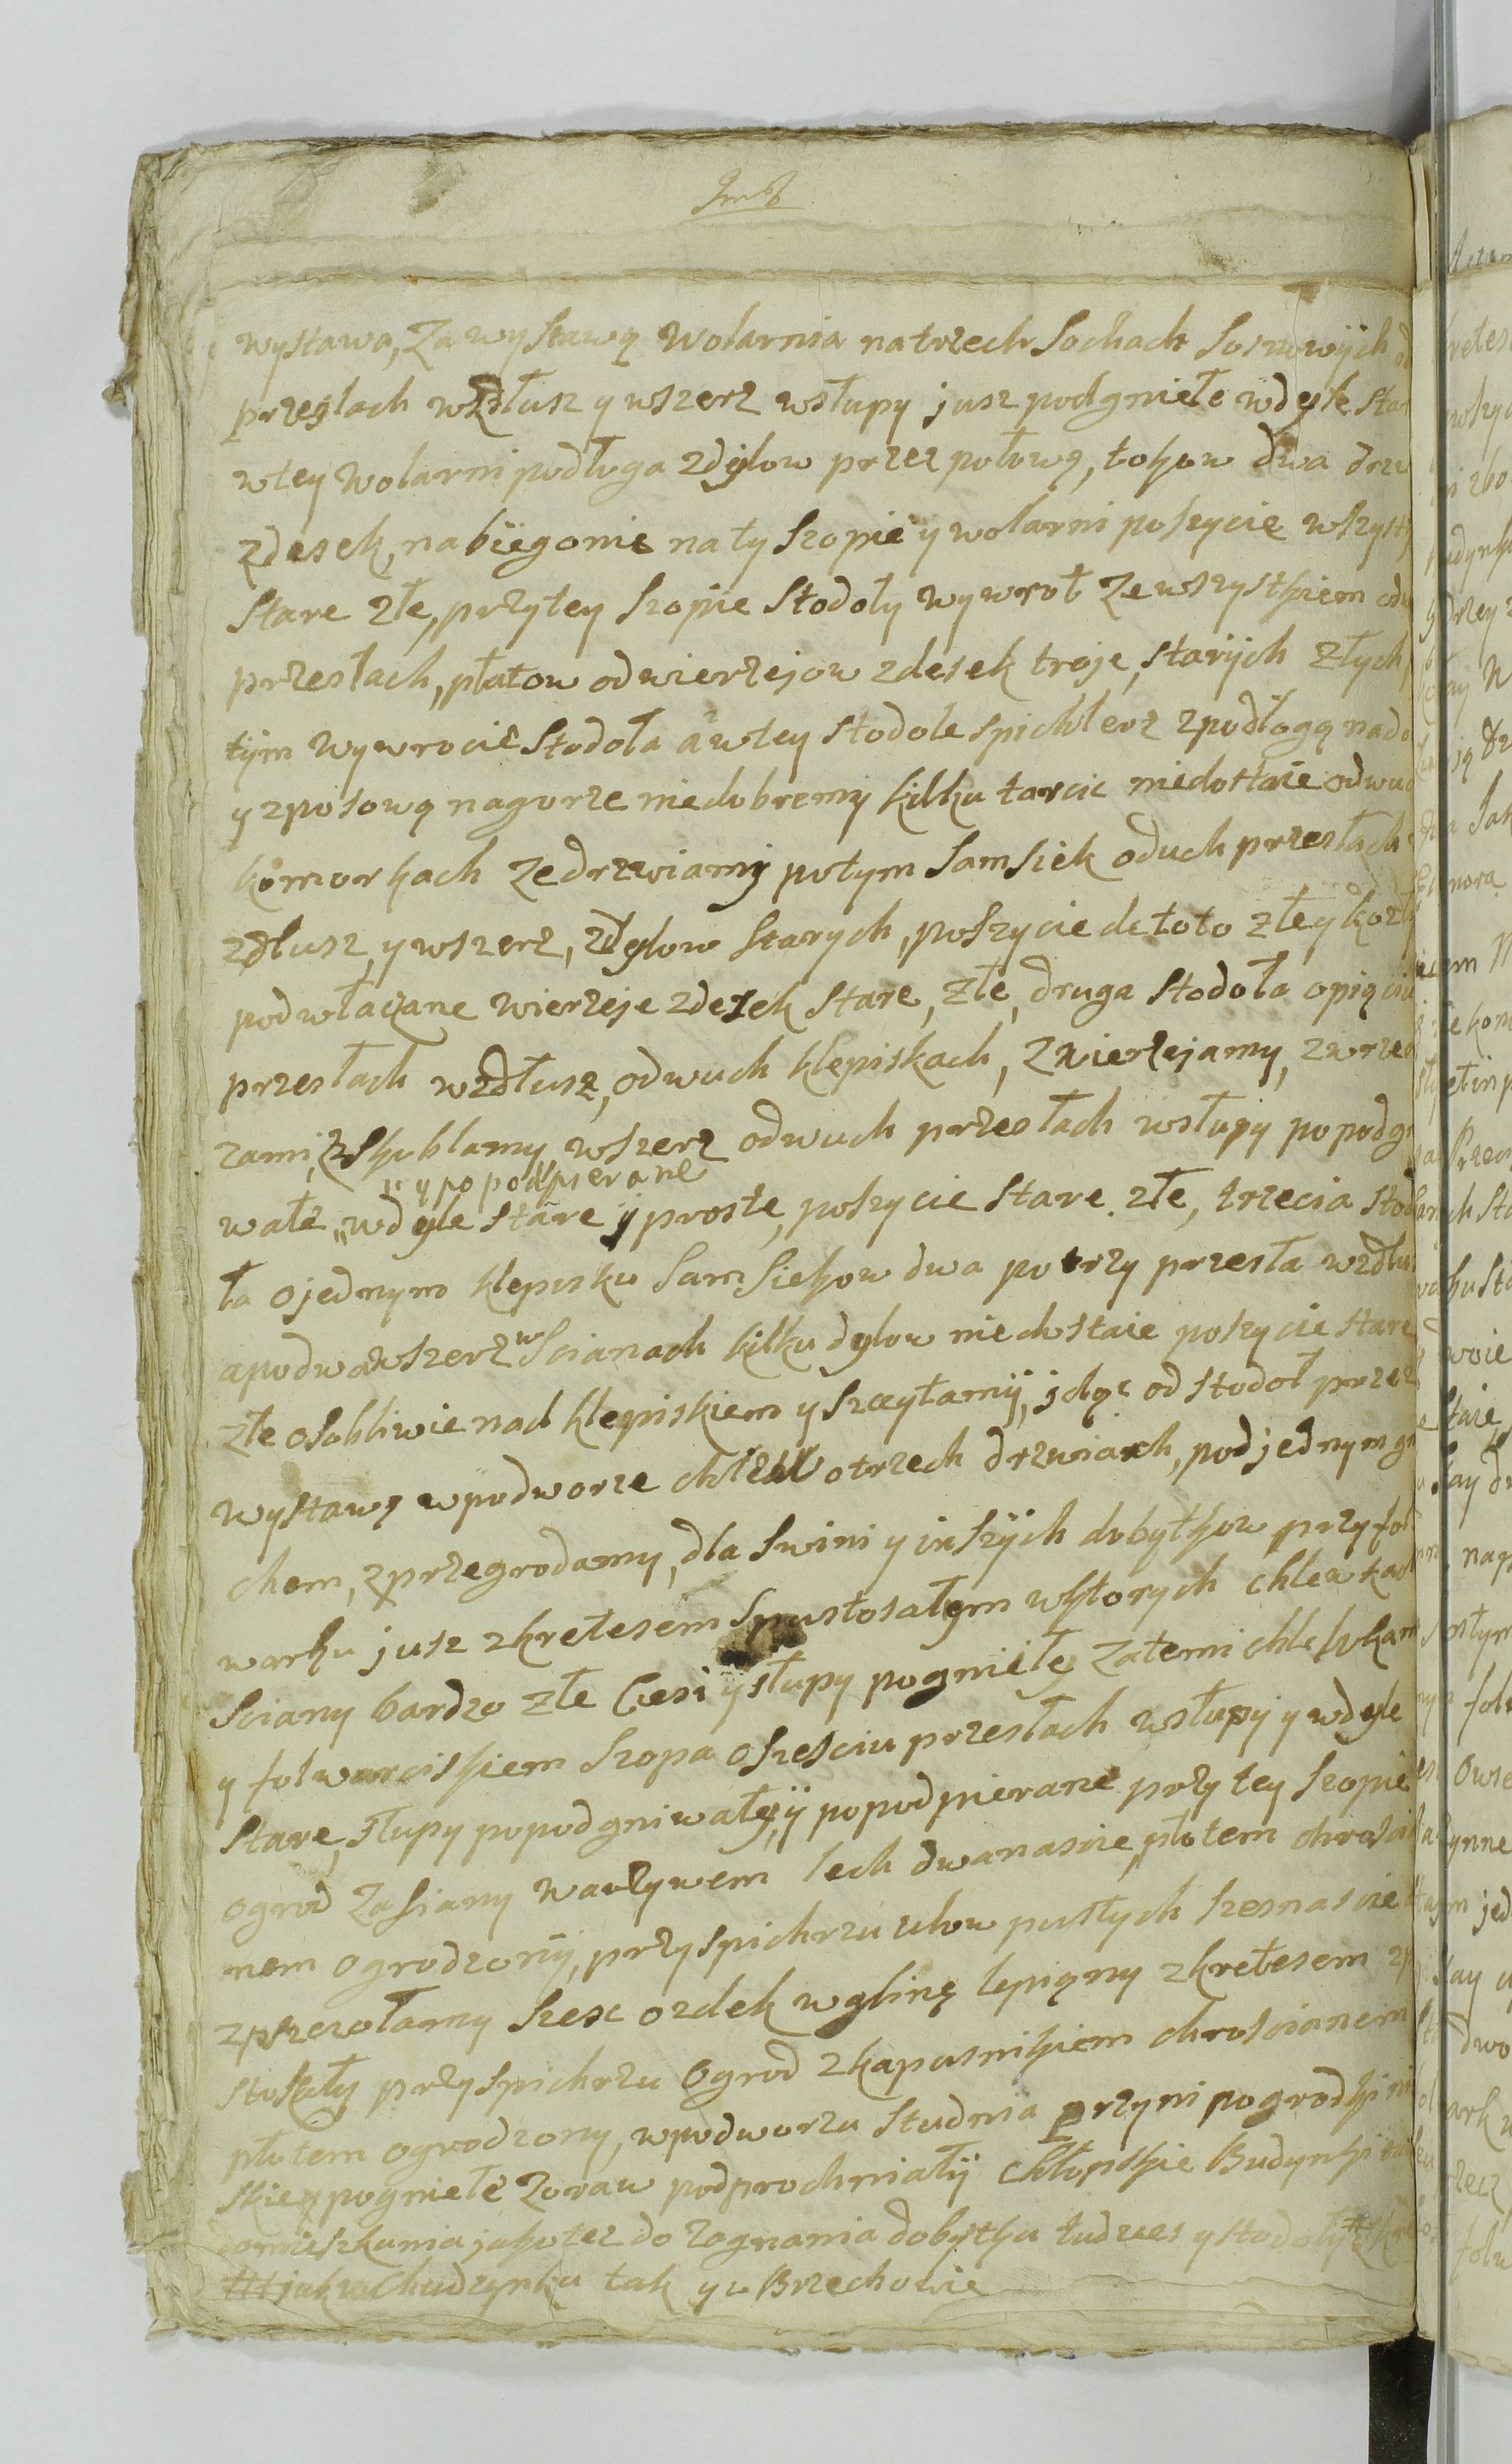 wystawa, Za wystawą Wolarnia na trzech Sochach Sosnowÿch
przęslach wzdłusz y wszerz wsłupy jusz podgniełe wdyle Star
wtey Wolarni podługa zdylow przez połowę, tokow dwa drzw
zdesek, na biegonie na ty Szopie y wolarni poszycie wszystk
Stare złe, przy tey Szopie Stodoły wywrot ze wszystkiem
przesłach, płatow od wierzejow zdesek troje, starÿch złych,
tÿm wywrocie Stodoła a wtey stodole spichlerz zpodłogą nado
y zposową nagorze niedobremi kilku tarcic niedostaie odwuch
komorkach Zedrzwiami potym Samsiek oduch przesłach
zdłusz, y wszerz, zdylow Starych, poszycie de toto złe y kozły
podwłaczane wierzeje zdesek stare, złe, druga Stodoła opiąciu
przesłach wzdłusz, odwuch klepiskach, zwierzejamy, zwrzec
zami, zSkublamy, wszerz odwuch przesłach wsłupy popodgni
„ y po podpierane
wałe „ wdyle stare y proste, poszycie Stare złe, trzecia Stodo
ła ojednym klepisku Samsiekow dwa potrzy przesła wzdłu
apodwa wszerz w Scianach kilku dylow niedostaie poszycie stare
złe osobliwie nad klepiskiem y szczytamÿ, idąc od stodoł przez
wystawę wpodworze otrzech drzwiach, pod jednym
chem, zprzegrodamy, dla Swini y inszÿch dobytkow przy fol
warku jusz zkretesem Spustosałem wktorych chlewkach
Sciany bardzo złe Ciesi y słupy pogniełe Zatemi chlewkam
y folwarciskiem Szopa oszesciu przesłach wsłupy y wdyle
Stare, słupy popodgniwałe, ÿ popodpierane przy tey Szopie
ogrod Zasiany warzywem lech dwanascie płotem chroscia
nem ogrodzonÿ, przy spichrzu ulow pustych szesnascie
zpszczołamy szesc ozdek wglinę lepiąny zkretesem
stoszały przy spichrzu Ogrod zkapusnikiem chroscianem
płotem ogrodzony, wpodworzu Studnia przyni pogrodki
skie pogniełe Zoraw podprochniałÿ Chłopskie Budynki
domieszkania jako tez do zagnania dobytku tudzies y stodoły
jak w Chudzynku tak y w Brzechowie